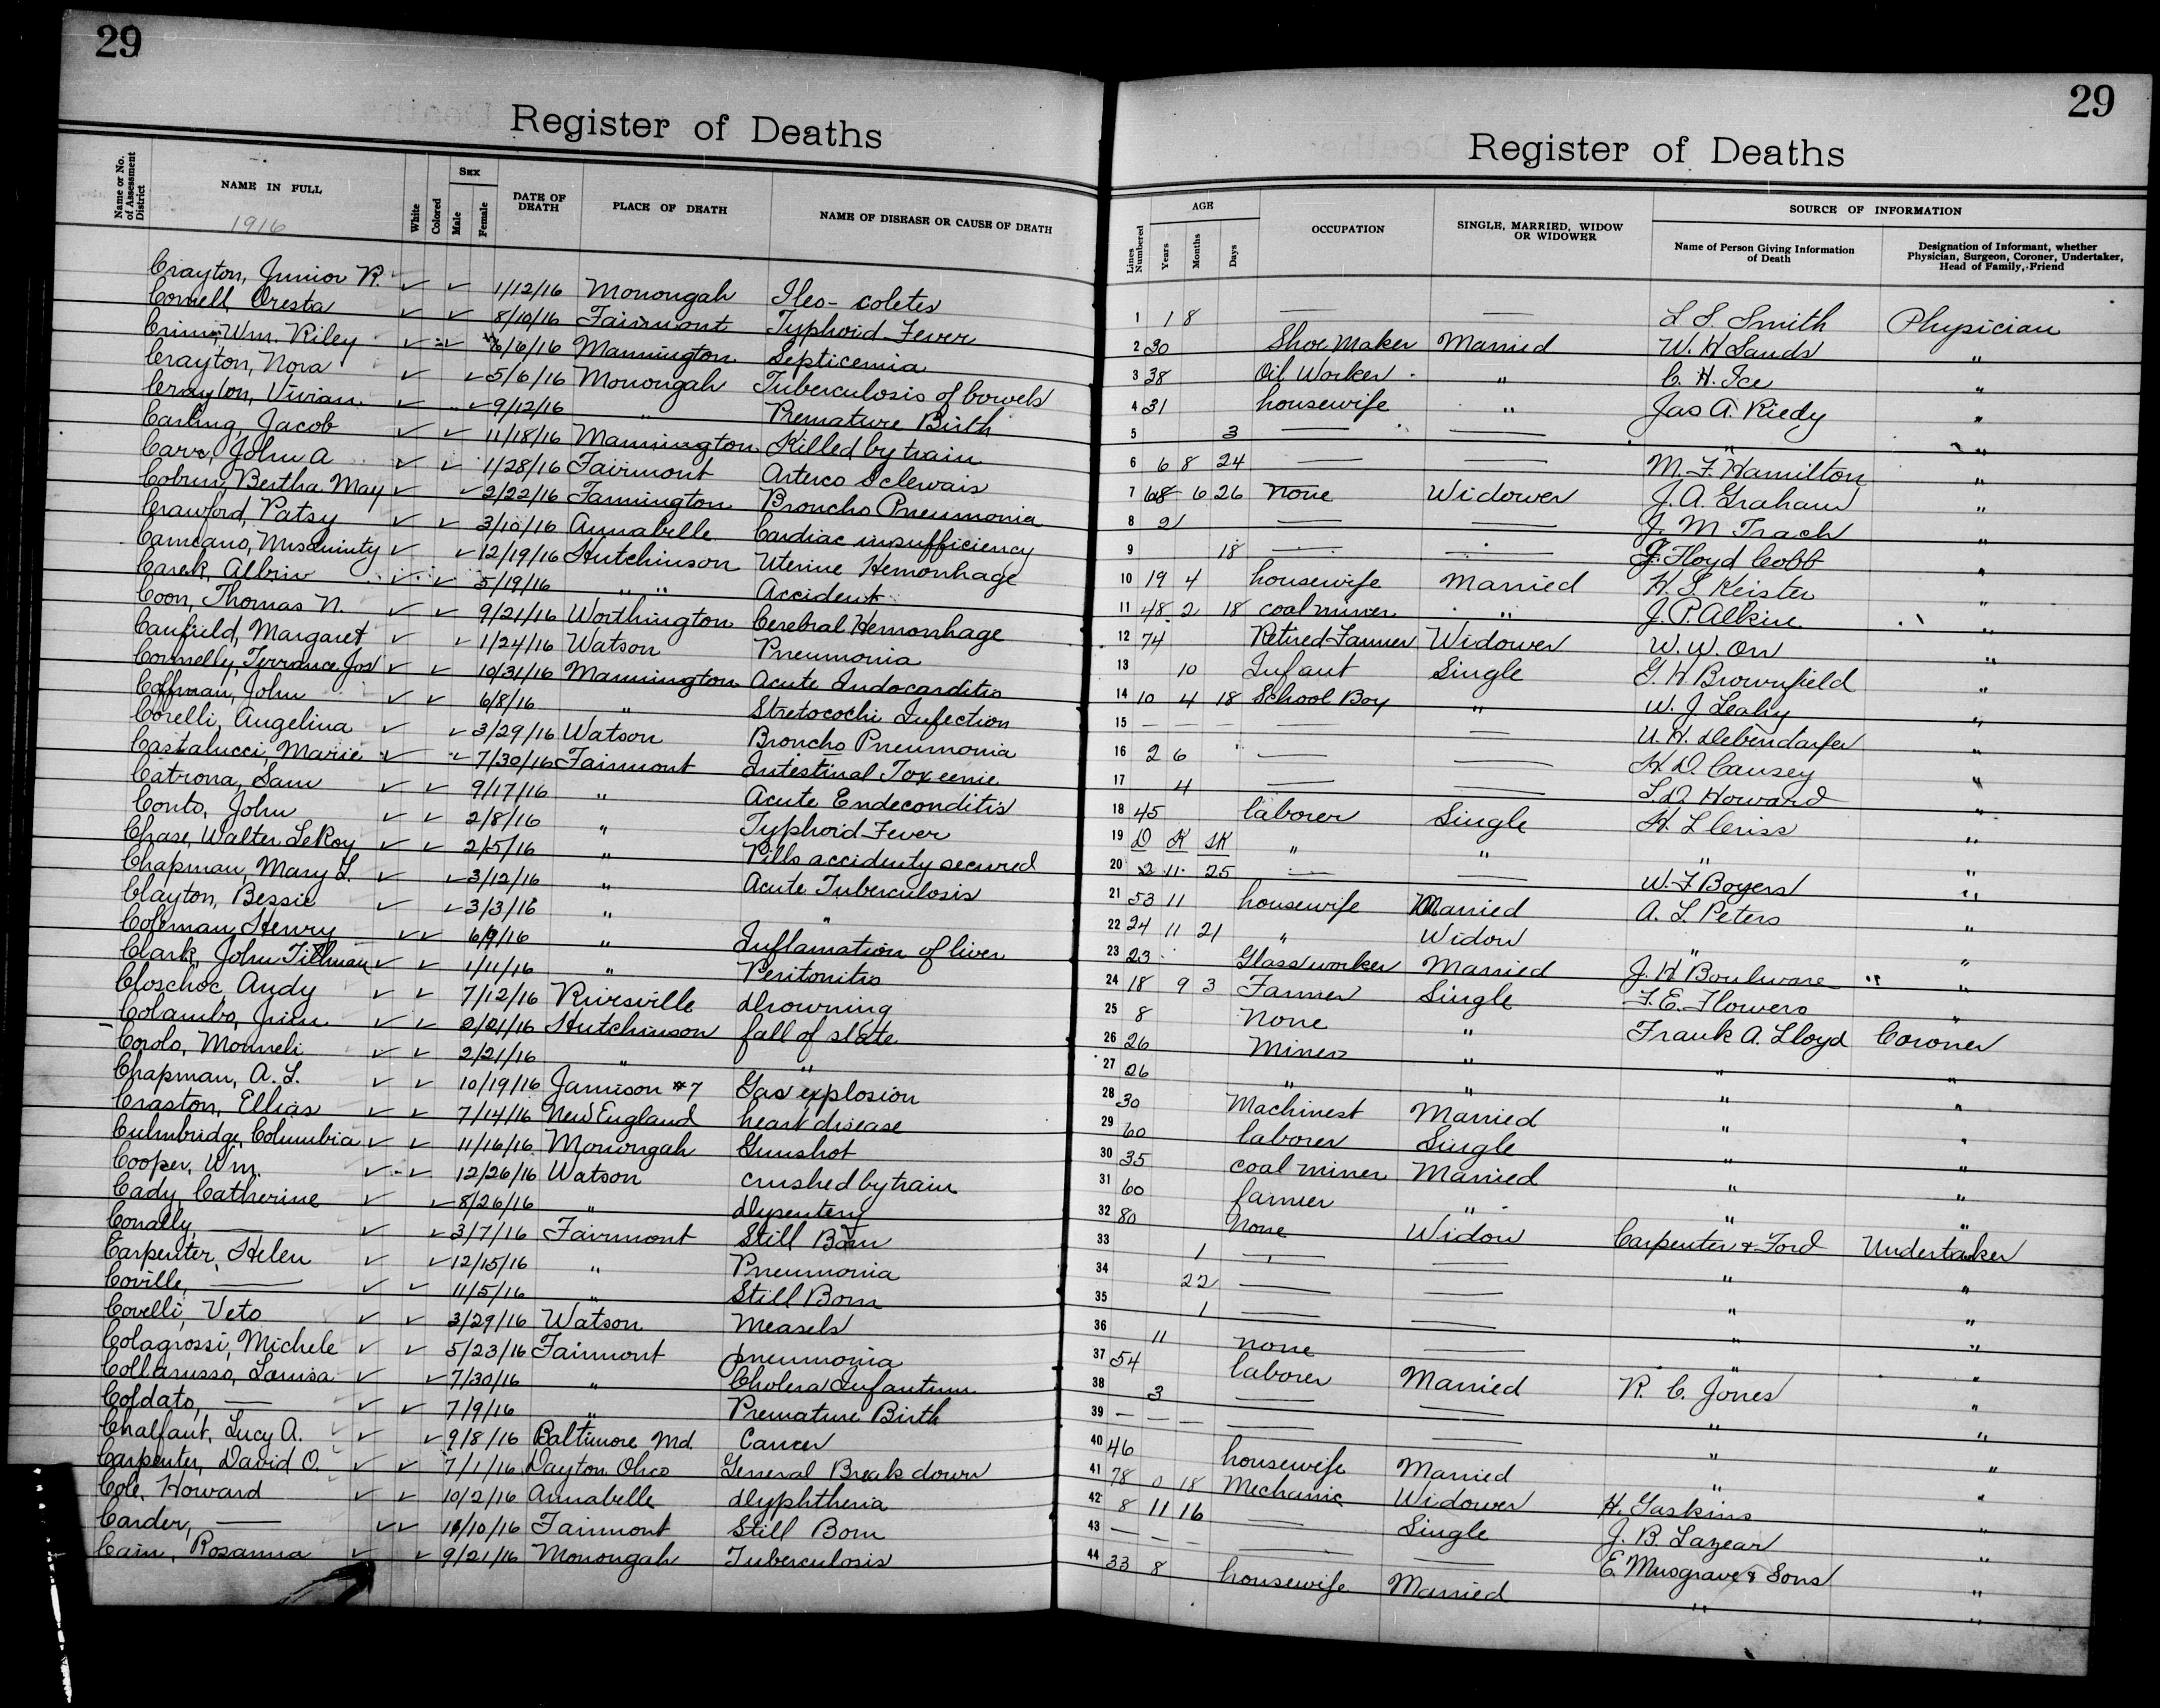 29
Register of Deaths
Name or No. of Assessment District
NAME IN FULL
White
Colored
SEX
Male
Female
DATE OF DEATH
PLACE OF DEATH
NAME OF DISEASE OR CAUSE OF DEATH
1916
Crayton, Junior R. ✓ ✓ 1/12/16 Monongah Ileo-coletes
Cornell, Oresta ✓ ✓ 8/10/16 Fairmont Typhoid Fever
Wm. Riley ✓ ✓ 6/6/16 Mannington Septicemia
Crayton, Nora ✓ ✓ 5/6/16 Monongah Tuberculosis of bowels
Crayton, Vivian ✓ ✓ 9/12/16 " Premature Birth
Carling, Jacob ✓ ✓ 11/18/16 Mannington Killed by train
Carr, John A ✓ ✓ 1/28/16 Fairmont Arterco Sclerais
Coburn, Bertha May ✓ ✓ 2/22/16 Farmington Broncho Pneumonia
Crawford, Patsy ✓ ✓ 3/10/16 Annabelle Cardiac insufficiency
✓ ✓ 12/19/16 Hutchinson Uterine Hemorrhage
Carek, Albin ✓ ✓ 5/19/16 " " Accident
Coon, Thomas N. ✓ ✓ 9/21/16 Worthington Cerebral Hemorrhage
Canfield, Margaret ✓ ✓ 1/24/16 Watson Pneumonia
Connelly, Terrance Jos ✓ ✓ 10/31/16 Mannington Acute Indocarditis
Coffman, John ✓ ✓ 6/8/16 " Stretocochi Infection
Corelli, Angelina ✓ ✓ 3/29/16 Watson Broncho Pneumonia
Castalucci, Marie ✓ ✓ 7/30/16 Fairmont Intestinal Toxeenie
Catrona, Sam ✓ ✓ 9/17/16 " Acute Endeconditis
Conto, John ✓ ✓ 2/8/16 " Typhoid Fever
Chase, Walter LeRoy ✓ ✓ 2/5/16 " Pills accidenty secured
Chapman, Mary L. ✓ ✓ 3/12/16 " Acute Tuberculosis
Clayton, Bessie ✓ ✓ 3/3/16 " "
Coleman, Henry ✓ ✓ 6/9/16 " Inflamation of liver
Clark, John Tillman ✓ ✓ 1/11/16 " Peritonitis
Closchoc, Andy ✓ ✓ 7/12/16 Rivesville Drowning
Colambo, Jim ✓ ✓ 2/21/16 Hutchinson fall of slate
Corolo, Monneli ✓ ✓ 2/21/16 " "
Chapman, A. L. ✓ ✓ 10/19/16 Jamison #7 Gas explosion
Craston, Ellias ✓ ✓ 7/14/16 New England heart disease
Culmbridge, Columbia ✓ ✓ 11/16/16 Monongah Gunshot
Cooper, Wm. ✓ ✓ 12/26/16 Watson crushed by train
Cady, Catherine ✓ ✓ 8/26/16 " Dysentery
Conally, — ✓ ✓ 3/7/16 Fairmont Still Born
Carpenter, Helen ✓ ✓ 12/15/16 " Pneumonia
Coville, — ✓ ✓ 11/5/16 " Still Born
Covelli, Veto ✓ ✓ 3/29/16 Watson Measels
Colagrossi, Michele ✓ ✓ 5/23/16 Fairmont pneumonia
Collarusso, Louisa ✓ ✓ 7/30/16 " Cholera Infantum
Coldato, — ✓ ✓ 7/9/16 " Premature Birth
Chalfant, Lucy A. ✓ ✓ 9/8/16 Baltimore Md. Cancer
Carpenter, David O. ✓ ✓ 7/1/16 Dayton Ohio General Break down
Cole, Howard ✓ ✓ 10/2/16 Annabelle Dyphtheria
Carder, — ✓ ✓ 11/10/16 Fairmont Still Born
Cain, Rosanna ✓ ✓ 9/21/16 Monongah Tuberculosis
29
Register of Deaths
Lines Numbered
AGE
Years
Months
Days
OCCUPATION
SINGLE, MARRIED, WIDOW OR WIDOWER
SOURCE OF INFORMATION
Name of Person Giving Information of Death
Designation of Informant, whether Physician, Surgeon, Coroner, Undertaker, Head of Family, Friend
1 1 8 — — L. S. Smith Physician
2 30 Shoe Maker Married W. H Sands "
3 38 Oil Worker " C. H. Ice "
4 31 housewife " Jas A. Riedy "
5 3 — — " "
6 6 8 24 — — M. F. Hamilton "
7 68 6 26 none Widower J. A. Graham "
8 2 — — J. M Trach "
9 18 — — J. Floyd Cobb "
10 19 4 housewife Married H. S. Keister "
11 48 2 18 coal miner " J. P. Alkire "
12 74 Retired Farmer Widower W. W. Orr "
13 10 Infant Single G. H. Brownfield "
14 10 4 18 School Boy " W. J. Leahy "
15 — — — — — U. H. Debendarfer "
16 2 6 — — H. D. Causey "
17 4 — — L. D. Howard "
18 45 laborer Single H. L Criss "
19 D K DK " " " "
20 2 11 25 — — W. F Boyers "
21 53 11 housewife Married A. L. Peters "
22 24 11 21 " Widow " "
23 23 Glass worker Married J. H Boulware "
24 18 9 3 Farmer Single F. E. Flowers "
25 8 none " Frank A. Lloyd Coroner
26 26 Miner " " "
27 26 " " " "
28 30 Machinest Married " "
29 60 laborer Single " "
30 35 coal miner Married " "
31 60 farmer " " "
32 80 None Widow Carpenter & Ford Undertaker
33 1 — — " "
34 22 — — " "
35 1 — — " "
36 11 none — " "
37 54 laborer Married R. C. Jones "
38 3 — — " "
39 — — — — — " "
40 46 housewife Married " "
41 78 0 18 Mechanic Widower H. Gaskins "
42 8 11 16 — Single J. B. Lazear "
43 — — — — — E. Musgrave & Sons "
44 33 8 housewife Married " "